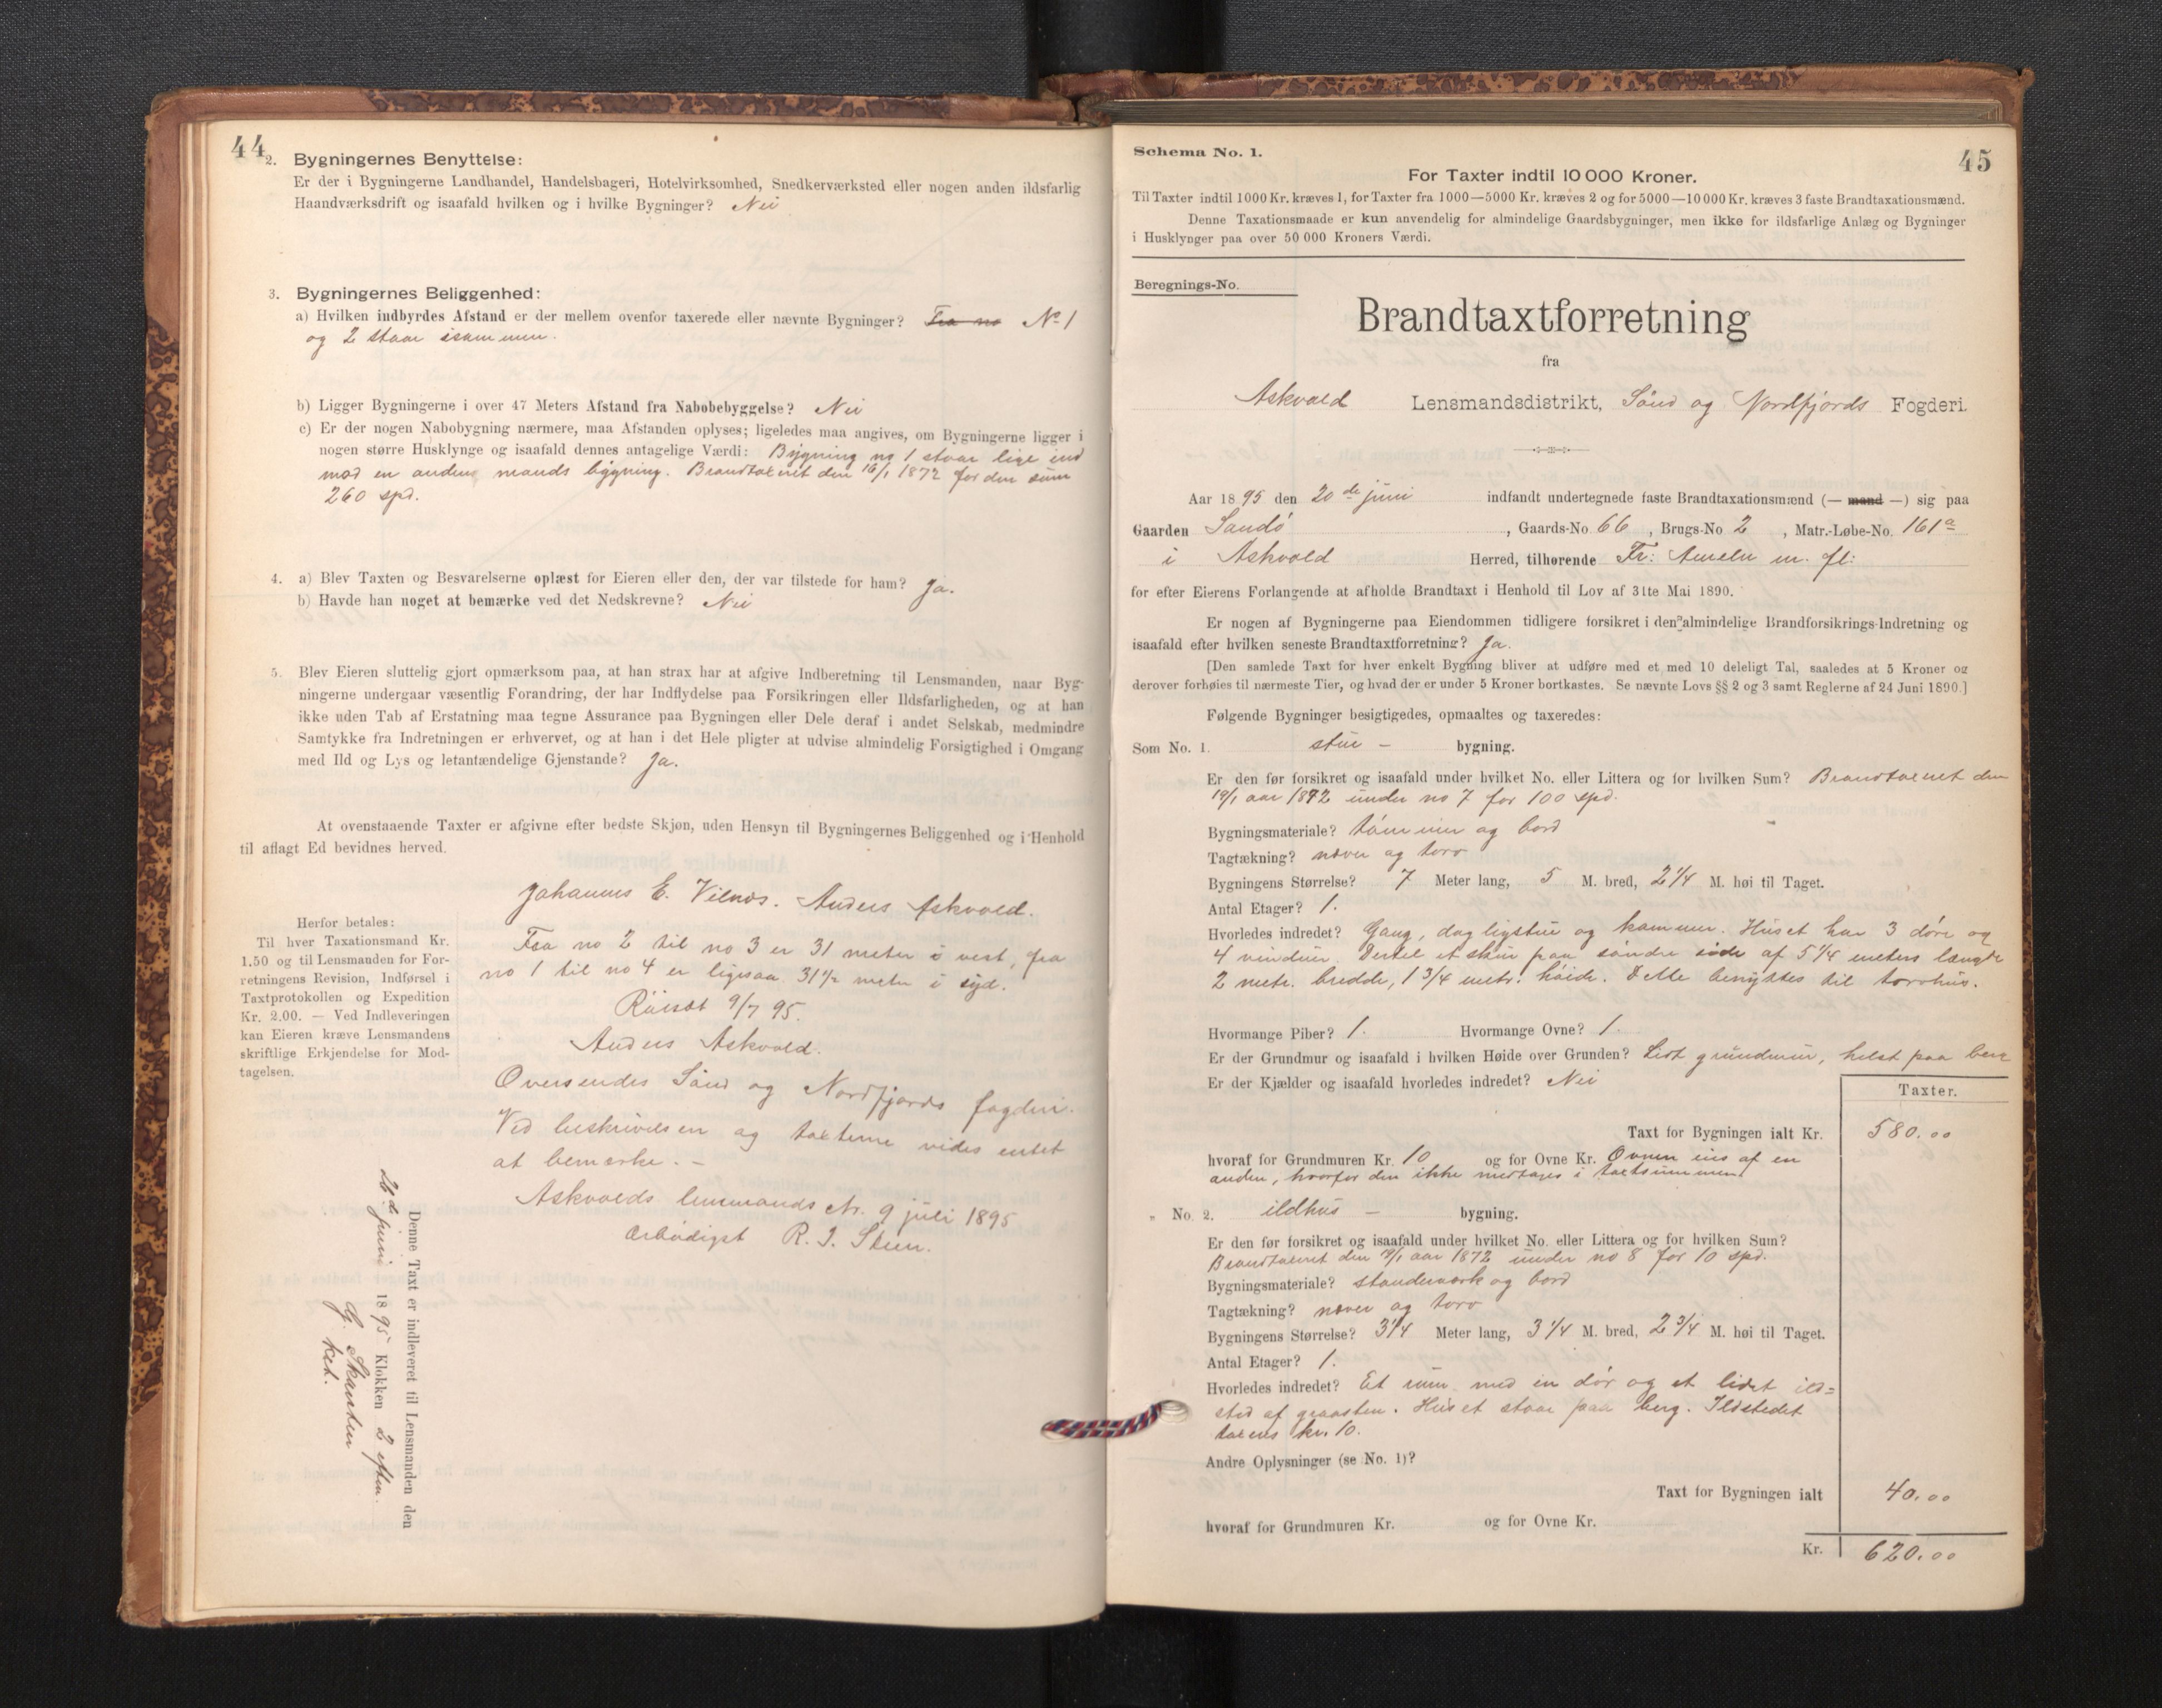 44
2. Bygningernes Benyttelse:
Er der i Bygningerne Landhandel, Handelsbageri, Hotelvirksomhed, Snedkerværksted eller nogen anden ildsfarlig
Haandværksdrift og isaafald hvilken og i hvilke Bygninger? Nei
3. Bygningernes Beliggenhed:
a) Hvilken indbyrdes Afstand er der mellem ovenfor taxerede eller nævnte Bygninger? Fra no No 1
og 2 staar isammen.
b) Ligger Bygningerne i over 47 Meters Afstand fra Nabobebyggelse? Nei
c) Er der nogen Nabobygning nærmere, maa Afstanden oplyses; ligeledes maa angives, om Bygningerne ligger i
nogen større Husklynge og isaafald dennes antagelige Værdi: Bygning no 1 staar lige ind
mod en anden mands bygning. Brandtaxeret den 16/1 1872 for den sum
260 spd.
4. a) Blev Taxten og Besvarelserne oplæst for Eieren eller den, der var tilstede for ham? Ja.
b) Havde han noget at bemærke ved det Nedskrevne? Nei
5. Blev Eieren sluttelig gjort opmærksom paa, at han strax har at afgive Indberetning til Lensmanden, naar Byg-
ningerne undergaar væsentlig Forandring, der har Indflydelse paa Forsikringen eller Ildsfarligheden, og at han
ikke uden Tab af Erstatning maa tegne Assurance paa Bygningen eller Dele deraf i andet Selskab, medmindre
Samtykke fra Indretningen er erhvervet, og at han i det Hele pligter at udvise almindelig Forsigtighed i Omgang
med Ild og Lys og letantændelige Gjenstande? Ja.
At ovenstaaende Taxter er afgivne efter bedste Skjøn, uden Hensyn til Bygningernes Beliggenhed og i Henhold
til aflagt Ed bevidnes herved.
Johannes E. Vilnæs. Anders Askvold.
Herfor betales:
Til hver Taxationsmand Kr.
1.50 og til Lensmanden for For-
retningens Revision, Indførsel i
Taxtprotokollen og Expedition
Kr. 2.00. — Ved Indleveringen
kan Eieren kræve Lensmandens
skriftlige Erkjendelse for Mod-
tagelsen.
Fra no 2 til no 3 er 31 meter i vest, fra
no 1 til no 4 er ligesaa 31 1/2 meter i syd.
9/7 95.
Anders Askvold.
Oversendes Sönd og Nordfjords fogderi.
Ved beskrivelsen og taxterne vides intet
at bemærke. –
Askvolds lensmandsktr. 9 juli 1895
ærbødigst R. J. Steen.
Denne Taxt er indleveret til Lensmanden den
26d juni 1895 Klokken 2 eftm.
G. Skarsten
kst.
Schema No. 1.
45
For Taxter indtil 10 000 Kroner.
Til Taxter indtil 1000 Kr. kræves 1, for Taxter fra 1000—5000 Kr. kræves 2 og for 5000—10 000 Kr. kræves 3 faste Brandtaxationsmænd.
Denne Taxationsmaade er kun anvendelig for almindelige Gaardsbygninger, men ikke for ildsfarlige Anlæg og Bygninger
i Husklynger paa over 50 000 Kroners Værdi.
Beregnings-No.
Brandtaxtforretning
fra
Askvold Lensmandsdistrikt, Sönd og Nordfjords Fogderi.
Aar 1895 den 20de juni indfandt undertegnede faste Brandtaxationsmænd (— mand —) sig paa
Gaarden Sandö, Gaards-No. 66, Brugs-No. 2, Matr.-Løbe-No. 161a
i Askvold Herred, tilhørende Fr: Ameln m. fl:
for efter Eierens Forlangende at afholde Brandtaxt i Henhold til Lov af 31te Mai 1890.
Er nogen af Bygningerne paa Eiendommen tidligere forsikret i den almindelige Brandforsikrings-Indretning og
isaafald efter hvilken seneste Brandtaxtforretning? Ja.
[Den samlede Taxt for hver enkelt Bygning bliver at udføre med et med 10 deleligt Tal, saaledes at 5 Kroner og
derover forhøies til nærmeste Tier, og hvad der er under 5 Kroner bortkastes. Se nævnte Lovs §§ 2 og 3 samt Reglerne af 24 Juni 1890.]
Følgende Bygninger besigtigedes, opmaaltes og taxeredes:
Som No. 1. stue – bygning.
Er den før forsikret og isaafald under hvilket No. eller Littera og for hvilken Sum? Brandtaxeret den
19/1 aar 1872 under no 7 for 100 spd.
Bygningsmateriale? tömmer og bord
Tagtækning? næver og torv
Bygningens Størrelse? 7 Meter lang, 5 M. bred, 2 1/4 M. høi til Taget.
Antal Etager? 1.
Hvorledes indredet? Gang, dagligstue og kammer. Huset har 3 döre og
4 vinduer. Dertil et skur paa söndre side af 5 1/4 meters længde
2 metr. bredde, 1 3/4 metr. höide. Dette benyttes til torvhus.
Hvormange Piber? 1. Hvormange Ovne? 1.
Er der Grundmur og isaafald i hvilken Høide over Grunden? Lidt grundmur, helst paa berg
Er der Kjælder og isaafald hvorledes indredet? Nei
Taxter.
Taxt for Bygningen ialt Kr. 580.00
hvoraf for Grundmuren Kr. 10 og for Ovne Kr. Ovnen eies af en
anden, hvorfor den ikke medtages i taxtsummen.
„ No. 2. ildhus – bygning.
Er den før forsikret og isaafald under hvilket No. eller Littera og for hvilken Sum?
Brandtaxeret den 19/1 aar 1872 under no 8 for 10 spd.
Bygningsmateriale? standerværk og bord
Tagtækning? næver og torv
Bygningens Størrelse? 3 1/4 Meter lang, 3 1/4 M. bred, 2 3/4 M. høi til Taget.
Antal Etager? 1.
Hvorledes indredet? Et rum med en dör og et lidet ild=
sted af graasten. Huset staar paa berg. Ildstedet
taxeres kr. 10.
Andre Oplysninger (se No. 1)?
Taxt for Bygningen ialt 40.00
hvoraf for Grundmuren Kr. og for Ovne Kr.
Kr. 620.00